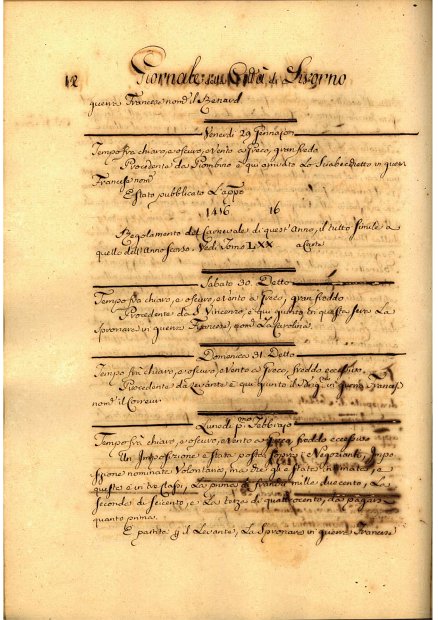 12 Giornale della Città di Livorno
guerra Francese nom.º il Renard.
Venerdì 29 Gennajo
Tempo fra chiaro, e oscuro, e vento a Greco, gran fredo
Procedente da Piombino è qui arrivato Lo Sciabecchetto in guerra
Francese nom.º
È stato pubblicato L'appo
1416 16
Regolamento del Carnevale di quest'Anno, il tutto simile a
quello dell'Anno scorso. Vedi Tomo LXX a Carte
Sabato 30. Detto
Tempo fra chiaro, e oscuro, e vento a Greco, gran freddo
Procedente da S. Vincenzo, è qui giunto in questa sera La
Speronara in guerra Francese, nom.ª La Carolina.
Domenica 31. Detto
Tempo fra chiaro, e oscuro, e vento a Greco, freddo eccessivo.
Procedente da Levante è qui giunto il Brig.no in guerra Francese
nom.º il Corrier
Lunedì p.mo Febbrajo
Tempo fra chiaro, e oscuro, e vento a Greco, freddo eccessivo
Un Imposizione è stata posta sopra i Negozianti, Impo
sizione nominata Volontaria, ma tre quì è stata intimata, e
queste è in tre Classi, La prima di franchi mille duecento, La
seconda di seicento, e La terza di quattrocento, da pagarsi
quanto prima.
È partita p. il Levante, La Speronara in guerra Francese